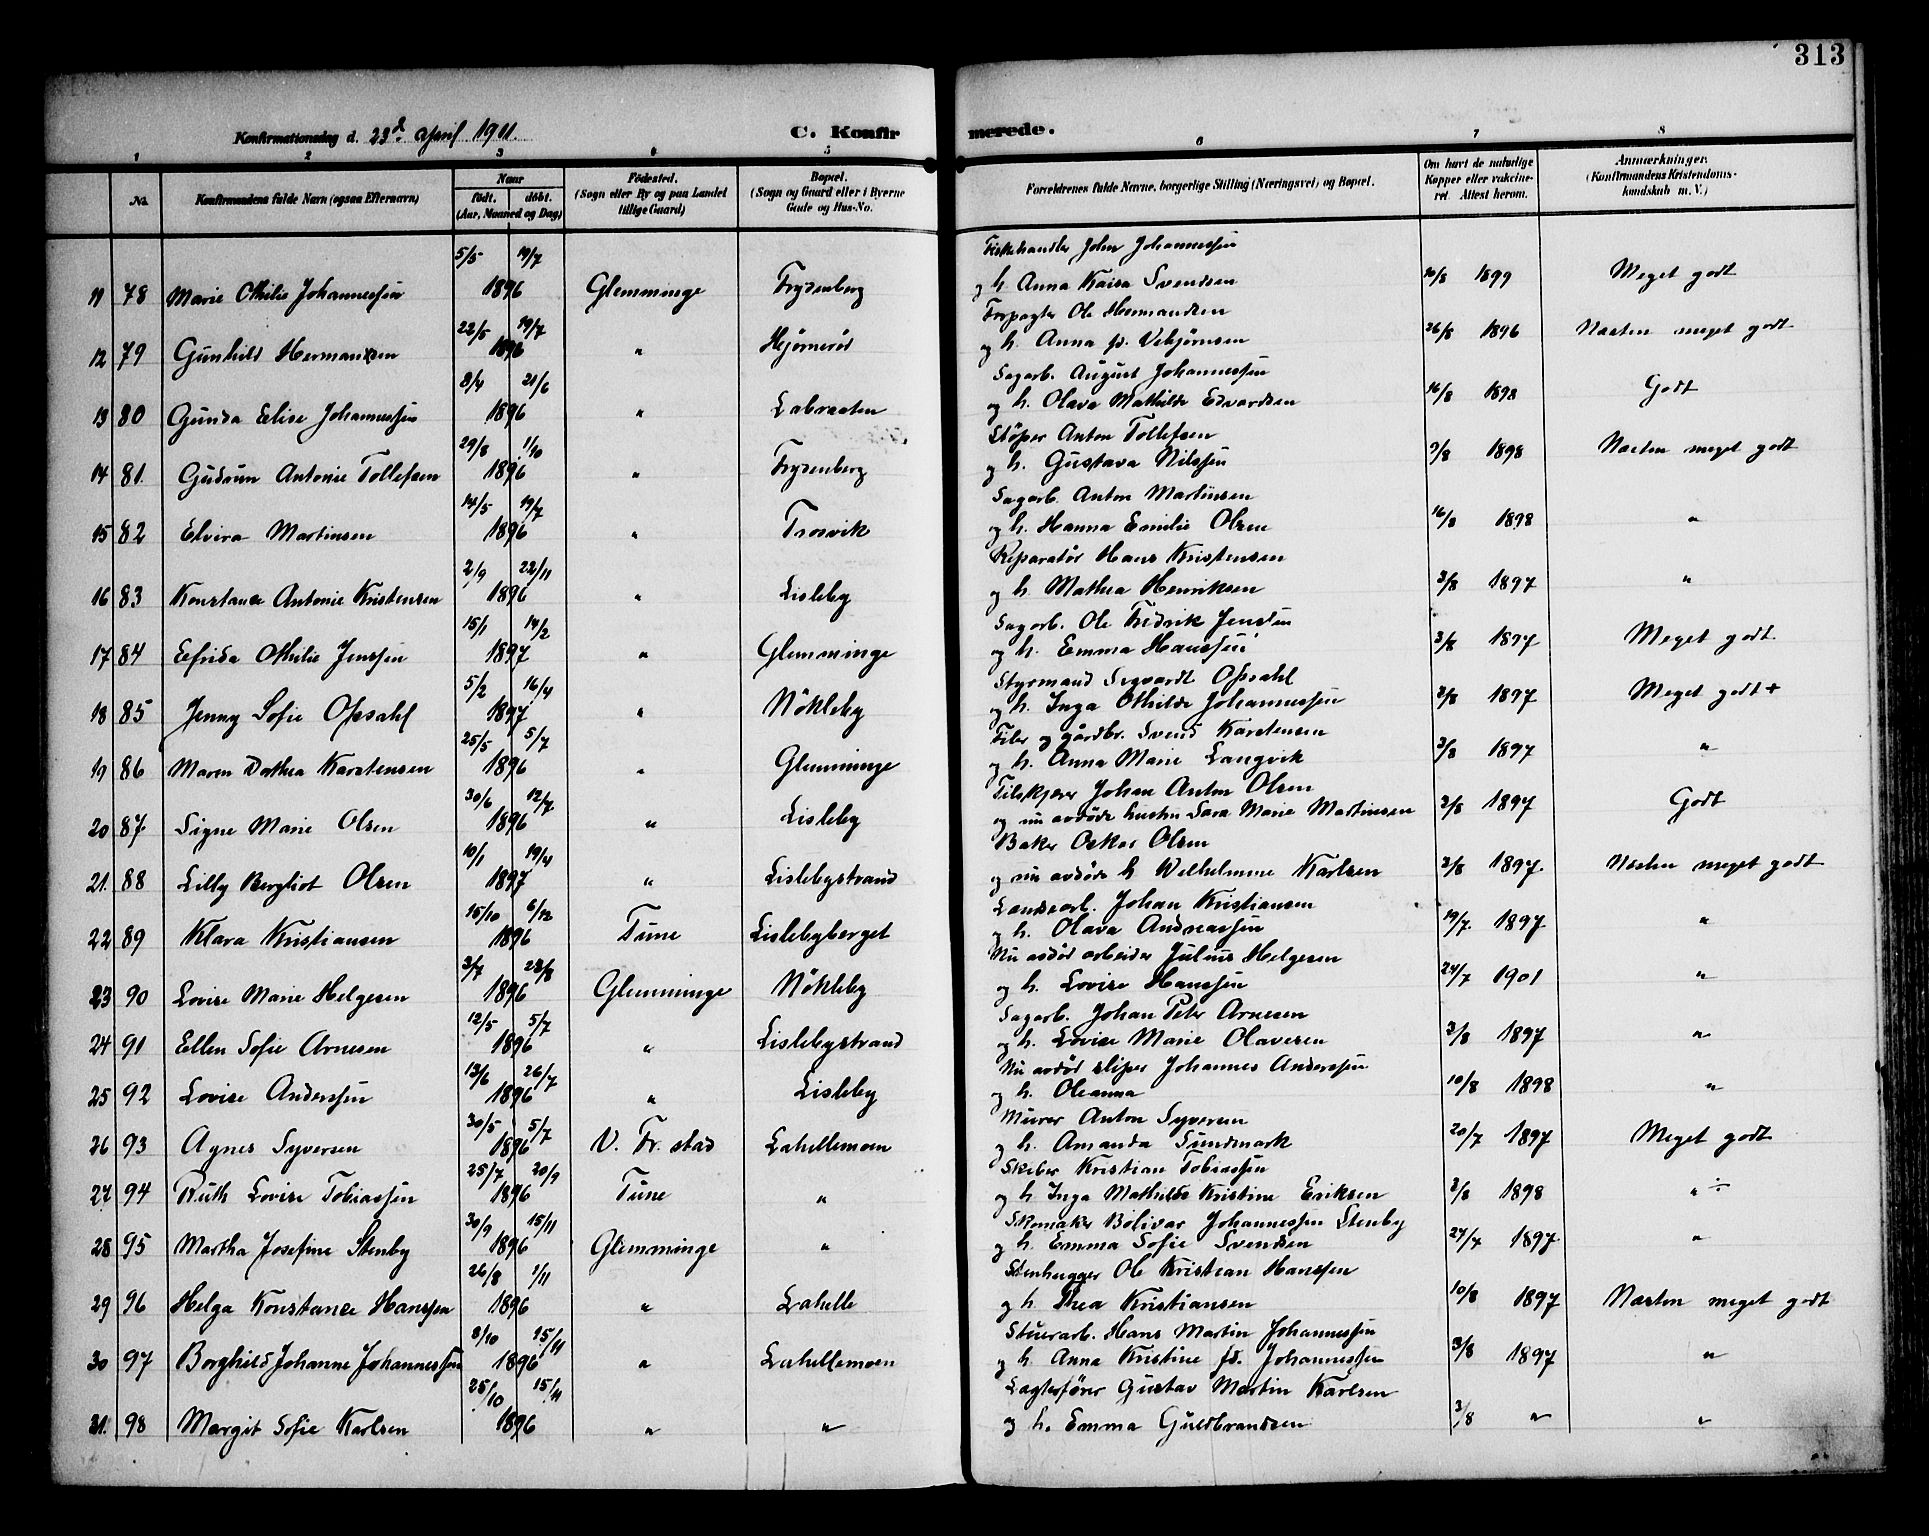 313
Konfirmationsdag d. 23d. april 1911.
C. Konfirmerede.
1 2 3 4 5 6 7 8
No.
Konfirmandens fulde Navn (ogsaa Efternavn)
Naar født. døbt. (Aar, Maaned og Dag)
Fødested. (Sogn eller By og paa Landet tillige Gaard)
Bopæl. (Sogn og Gaard eller i Byerne Gade og Hus-No.
Forældrenes fulde Navne, borgerlige Stilling (Næringsvei) og Bopæl.
Om havt de naturlige Kopper eller vakcineret Attest herom.
Anmærkninger. (Konfirmandens Kristendomskundskab m. V.)
11 78 Marie Othilie Johannessen 5/5 19/7 1896 Glemminge Frydenberg Fiskehandler John Johannessen
og h. Anna Kaisa Svendsen 10/8 1899 Meget godt
12 79 Gunhild Hermansen 22/5 19/7 1896 " Hjørnerød Forpagter Ole Hermandsen
og h. Anna f. Vebjørnsen 26/8 1896 Næsten meget godt
13 80 Gunda Elise Johannessen 8/4 21/6 1896 " Labraaten Sagarb. August Johannessen
og h. Olava Mathilde Edvardsen 16/8 1898 Godt
14 81. Gudrun Antonie Tollefsen 29/8 1/10 1896 " Frydenberg Støper Anton Tollefsen
og h. Gustava Nilssen 3/8 1898 Næsten meget godt
15 82 Elvira Martinsen 14/5 19/7 1896 " Trosvik Sagarb. Anton Martinsen
og h. Hanna Emilie Olsen 16/8 1898 "
16 83 Konstance Antonie Kristensen 2/9 22/11 1896 " Lisleby Reparatør Hans Kristensen
og h Mathea Henriksen 3/8 1897 "
17 84 Elfrida Othilie Jenssen 15/1 14/2 1897 " Glemminge Sagarb. Ole Fredrik Jensen
og h. Emma Hanssen 3/8 1897 Meget godt.
18 85 Jenny Sofie Opsahl 5/2 16/4 1897 " Nökleby Styrmand Sigvardt Opsahl
og h. Inga Othilde Johannessen 3/8 1897 Meget godt +
19 86 Maren Dorthea Karstensen 25/5 5/7 1896 " Glemminge Filer og gårdbr. Svend Karstensen
og h. Anna Marie Langvik 3/8 1897 "
20 87. Signe Marie Olsen 30/6 12/7 1896 " Lisleby Filskjærer Johan Anton Olsen
og nu avdöde hustru Sara Marie Martinsen 3/8 1897 Godt
21. 88 Lilly Bergliot Olsen 10/1 19/4 1897 " Lislebystrand Baker Oskar Olsen
og nu avdöde h Wilhelmine Karlsen 3/8 1897. Næsten meget godt
22 89 Klara Kristiansen 15/10 6/12 1896 Tune Lislebyberget Landearb. Johan Kristiansen
og h. Olava Andreassen 19/7. 1897 "
23 90 Lovise Marie Helgesen 3/7 23/8 1896 Glemminge Nökleby Nu avdöd arbeider Julius Helgesen
og h. Lovise Hanssen 24/7 1901 "
24 91 Ellen Sofie Arnesen 12/5 5/7 1896 " Lislebystrand Sagarb. Johan Peter Arnesen
og h. Lovise Marie Olavesen 3/8 1897 "
25 92 Lovise Anderssen 13/6 26/7 1896 " Lisleby Nu avdöd sliper Johannes Anderssen
og h. Oleanna 10/8 1898 "
26 93 Agnes Syversen 30/5 5/7 1896 V. Fr. stad Lahellemoen Murer Anton Syversen
og h. Amanda Sundmark 20/7 1897 Meget godt
27. 94 Ruth Lovise Tobiassen 25/7 20/9 1896 Tune " Kristian Tobiassen
og h Inga Mathilde Kristine Eriksen 3/8 1898 " ÷
28 95 Martha Josefine Stenby 30/9 15/11 1896 Glemminge " Skomaker Bolivar Johannessen Stenby
og h. Emma Sofie Svendsen 24/7 1897 "
29 96 Helga Konstanse Hanssen 26/8 1/11 1896 " Lahelle Stenhugger Ole Kristian Hanssen
og h. Thea Kristiansen 10/8 1897 Næsten meget godt
30 97 Borghild Johanne Johannessen 8/10 15/11 1896 " Lahellemoen Stuerarb. Hans Martin Johannessen
og h. Anna Kristine fd. Johannessen 3/8 1897 "
31. 98 Margit Sofie Karlsen 25/10 15/11 1896 " " Lagterfører Gustav Martin Karlsen
og h. Emma Guldbrandsen 3/8 " "